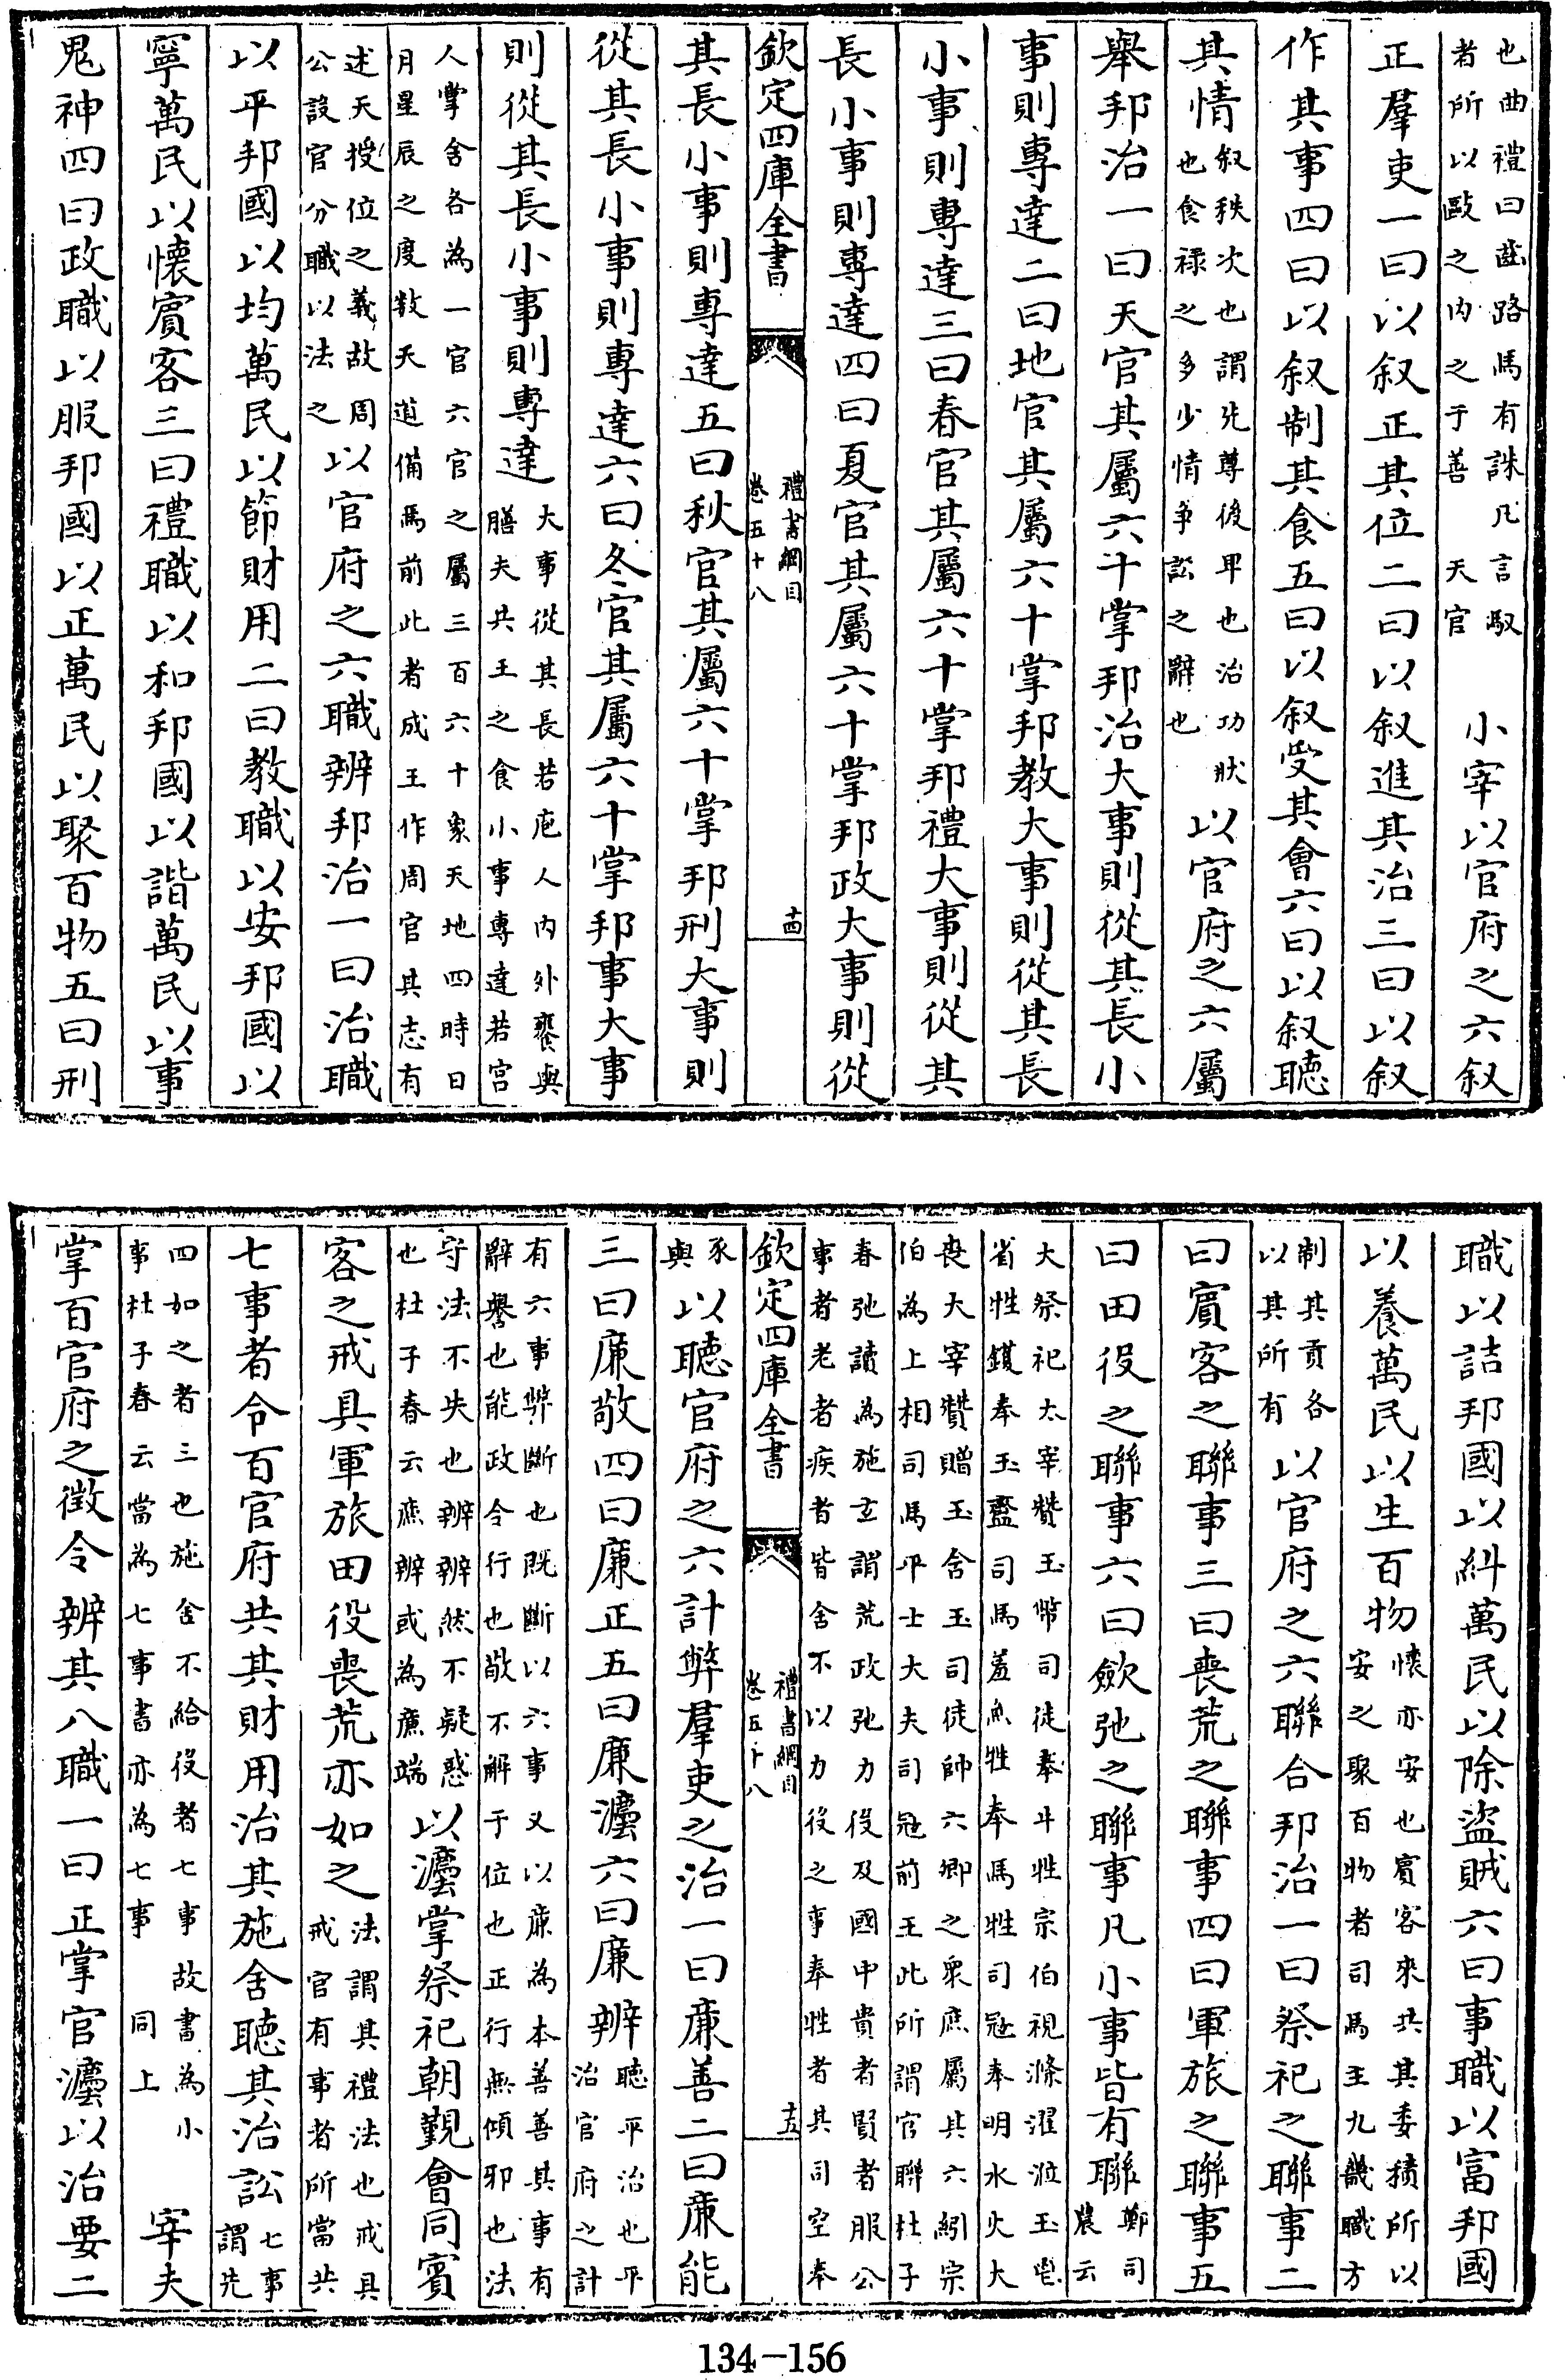 也曲禮曰齒路馬有誅凡言馭
者所以敺之内之于善　天官
小宰以官府之六叙
正羣吏一曰以叙正其位二曰以叙進其治三曰以叙
作其事四曰以叙制其食五曰以叙受其會六曰以叙聽
其情
叙秩次也謂先尊後卑也治功狀
也食禄之多少情争訟之辭也
以官府之六屬
舉邦治一曰天官其屬六十掌邦治大事則從其長小
事則專達二曰地官其屬六十掌邦教大事則從其長
小事則專達三曰春官其屬六十掌邦禮大事則從其
長小事則專達四曰夏官其屬六十掌邦政大事則從
欽定四庫全書
禮書綱目
卷五十八
十四
其長小事則專達五曰秋官其屬六十掌邦刑大事則
從其長小事則專達六曰冬官其屬六十掌邦事大事
則從其長小事則專達
大事從其長若庖人内外饔與
膳夫共王之食小事專達若宫
人掌舍各為一官六官之屬三百六十象天地四時日
月星辰之度數天道備焉前此者成王作周官其志有
述天授位之義故周
公設官分職以法之
以官府之六職辨邦治一曰治職
以平邦國以均萬民以節財用二曰教職以安邦國以
寧萬民以懷賓客三曰禮職以和邦國以諧萬民以事
鬼神四曰政職以服邦國以正萬民以聚百物五曰刑
職以詰邦國以糾萬民以除盜賊六曰事職以富邦國
以養萬民以生百物
懷亦安也賓客來共其委積所以
安之聚百物者司馬主九畿職方
制其貢各
以其所有
以官府之六聯合邦治一曰祭祀之聯事二
曰賓客之聯事三曰喪荒之聯事四曰軍旅之聯事五
曰田役之聯事六曰斂弛之聯事凡小事皆有聯
鄭司
農云
大祭祀太宰贊玉幣司徒奉牛牲宗伯視滌濯涖玉鬯
省牲鑊奉玉齍司馬羞魚牲奉馬牲司冦奉明水火大
喪大宰贊贈玉含玉司徒帥六鄉之衆庶屬其六綍宗
伯為上相司馬平士大夫司冦前王此所謂官聯杜子
春弛讀為施玄謂荒政弛力役及國中貴者賢者服公
事者老者疾者皆舍不以力役之事奉牲者其司空奉
欽定四庫全書
禮書綱目
卷五十八
十五
豕
與
以聽官府之六計弊羣吏之治一曰廉善二曰廉能
三曰廉敬四曰廉正五曰廉灋六曰廉辨
聽平治也平
治官府之計
有六事弊斷也既斷以六事又以廉為本善善其事有
辭譽也能政令行也敬不解于位也正行無傾邪也法
守法不失也辨辨然不疑惑
也杜子春云廉辨或為廉端
以灋掌祭祀朝覲會同賓
客之戒具軍旅田役喪荒亦如之
法謂其禮法也戒具
戒官有事者所當共
七事者令百官府共其財用治其施舍聽其治訟
七事
謂先
四如之者三也施舍不給役者七事故書為小
事杜子春云當為七事書亦為七事　同上
宰夫
掌百官府之徵令辨其八職一曰正掌官灋以治要二
134-156